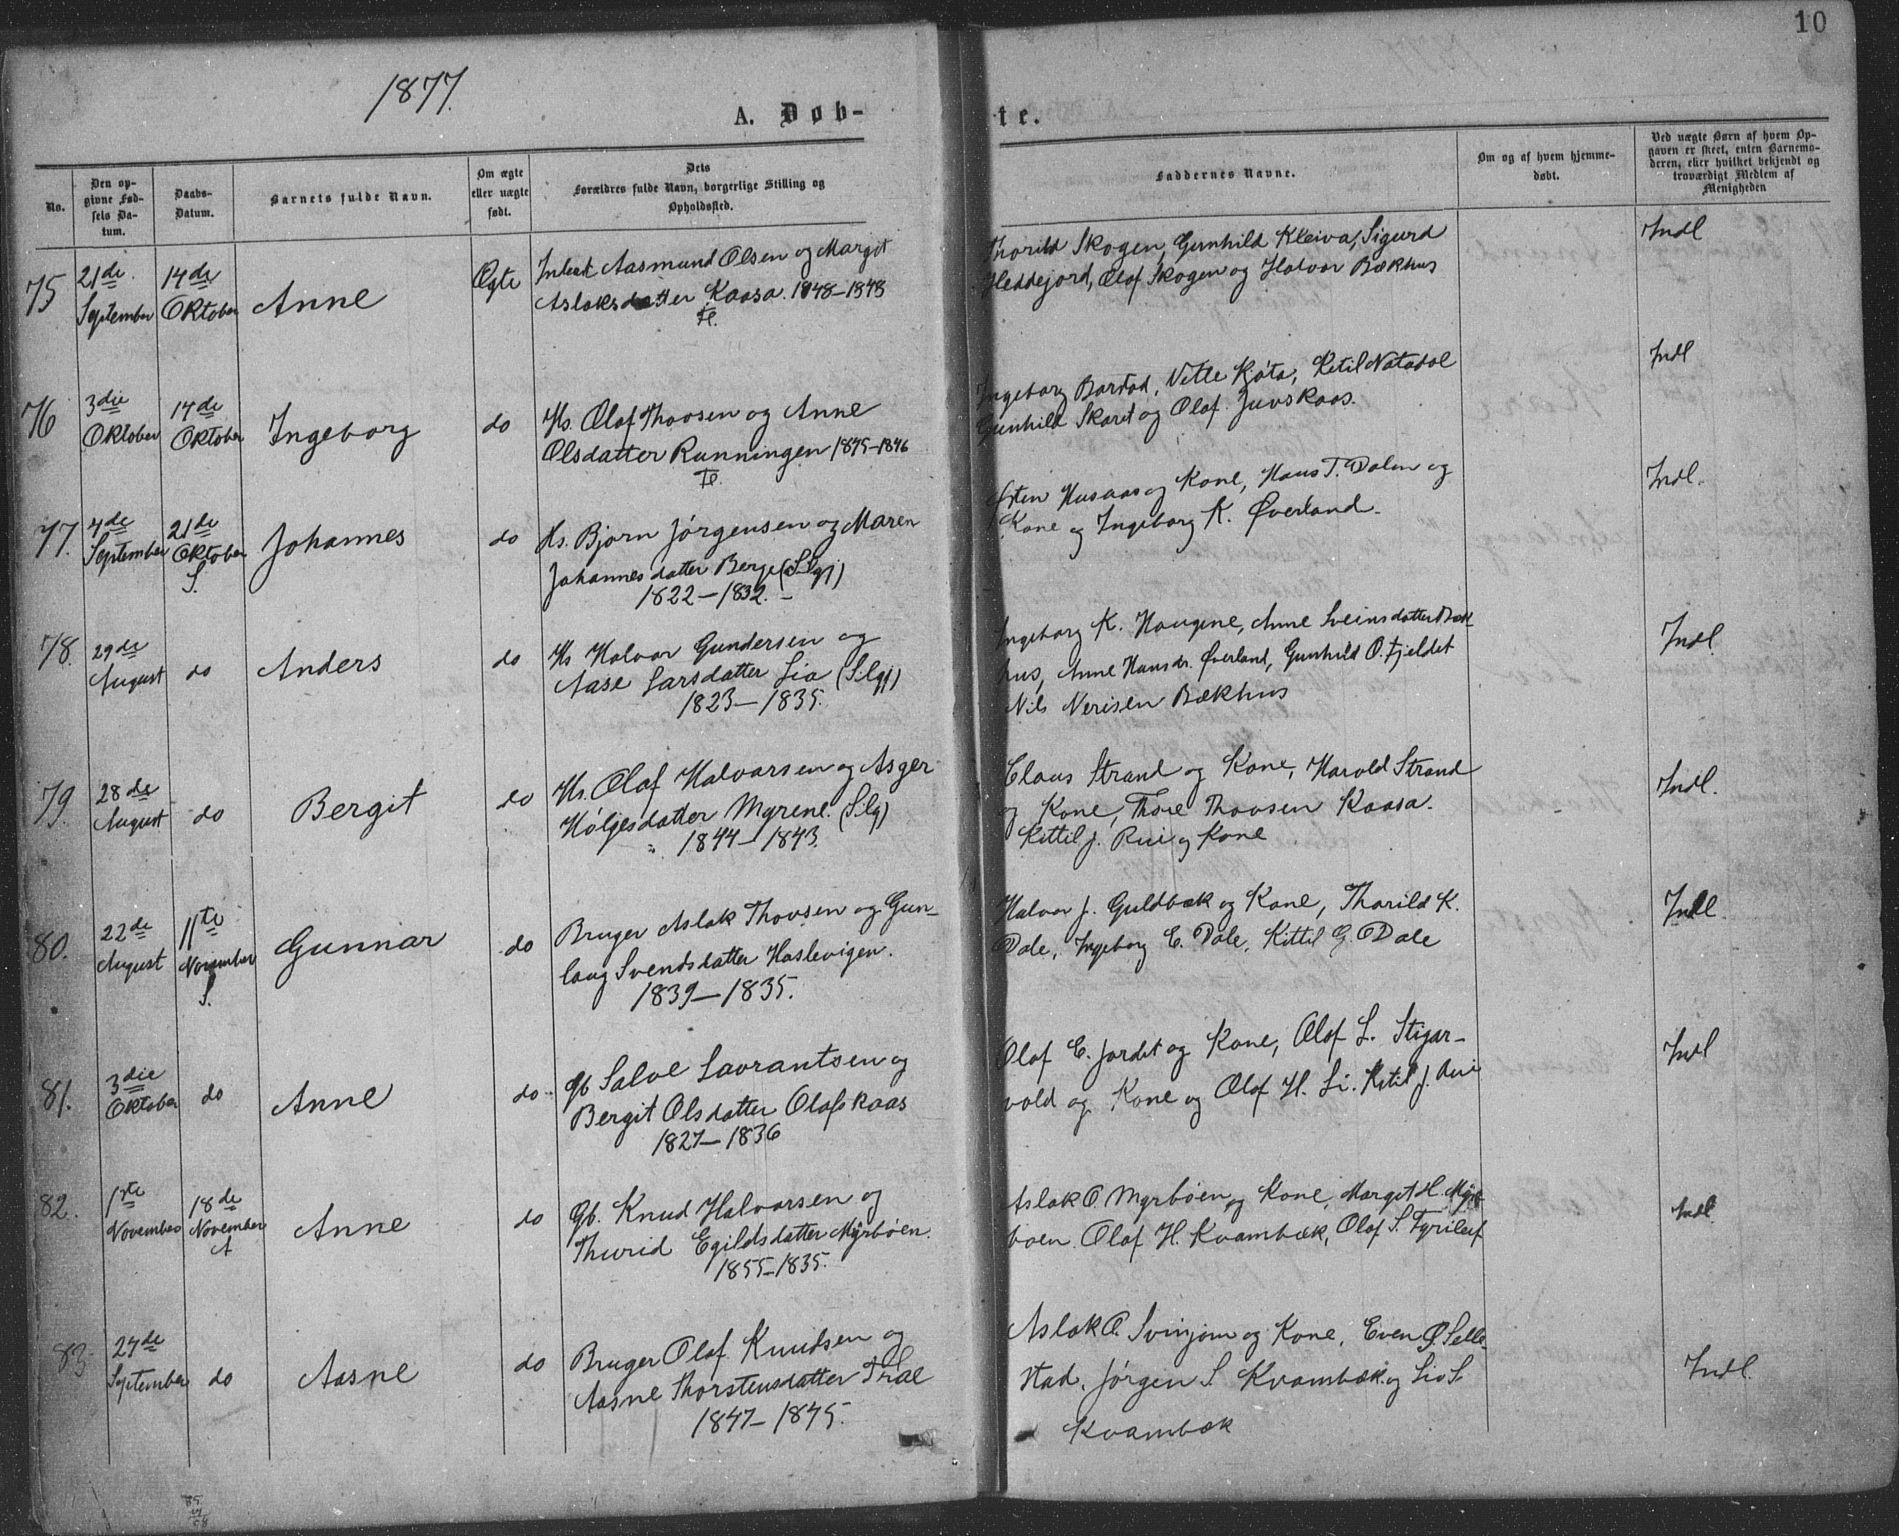 10
1877.
A. Døb-
te.
No.
Den op-
givne Fød-
sels Da-
tum.
Daabs-
Datum.
Barnets fulde Navn.
Om ægte
eller uægte
født.
Dets
Forældres fulde Navn, borgerlige Stilling og
Opholdssted.
Faddernes Navne.
Om og af hvem hjemme-
døbt.
Ved uægte Børn af hvem Op-
gaven er skeet, enten Barnemo-
deren, eller hvilket bekjendt og
troværdigt Medlem af
Menigheden
75
21de
September
14de
Oktober
Anne
Ægte
Inderst Aasmund Olsen og Margit
Aslaksdatter Kaasa. 1848–1848
Te.
Thorild Skogen, Gunhild Kleiva, Sigurd
Heddejord, Olaf Skogen og Halvor Bækhus
Indl
76
3die
Oktober
14de
Oktober
Ingeborg
do
Hs. Olaf Thovsen og Anne
Olsdatter Runningen 1845–1846
Te.
Ingeborg Bardad, Vetle Kjøta, Ketil Natadal
Gunhild Skaret og Olaf Juvskaas.
Indl
77.
4de
September
21de
Oktober
S.
Johannes
do
Hs. Bjørn Jørgensen og Maren
Johannesdatter Berge (S.lgj)
1822–1832.–
Østen Husaas og Kone, Hans T. Dalen og
Kone og Ingeborg K. Øverland.
Indl.
78.
29de
August
do
Anders
do
Hs Halvor Gundersen og
Aase Larsdatter Lia (S.lgj)
1823–1835.
Ingeborg K. Haugene, Anne Sveinsdatter Bæk-
hus, Anne Hansdr. Øverland, Gunhild O. Fjeldet
Nils Nerisen Bækhus
Indl.
79.
28de
August
do
Bergit
do
Hs. Olaf Halvorsen og Asger
Hølgesdatter Myrene. (S.lg)
1844–1843.
Claus Strand og Kone, Harold Strand
og Kone, Thore Thovsen Kaasa.
Kittil J. Rui og Kone
Indl.
80.
22de
August
11te
November
S.
Gunnar
do
Bruger Aslak Thovsen og Gun-
laug Svendsdatter Haslevigen.
1839–1835.
Halvor J. Guldbæk og Kone, Thorild K.
Dale, Ingeborg E. Dale, Kittil G. Dale
Indl.
81.
3die
Oktober
do
Anne
do
Gb Salve Lavrantsen og
Bergit Olsdatter Olafskaas
1827–1836
Olaf E. Jordet og Kone, Olaf L. Stigar-
vold og Kone og Olaf H. Li. Ketil J. Rui
Indl
82.
1ste
November
18de
November
A
Anne
do
Gb. Knud Halvorsen og
Thurid Egildsdatter Myrbøen.
1855–1835.
Aslak O. Myrbøen og Kone, Margit H. Myr-
bøen. Olaf H. Kvambæk, Olaf S. Tyrileif
Indl
83
27de
September
do
Aasne
do
Bruger Olaf Knudsen og
Aasne Thorstensdatter Træe
1847–1845.
Aslak O. Svinjom og Kone, Even O. Selle-
stad. Jørgen S. Kvambæk og Liv S.
Kvambæk
Indl.